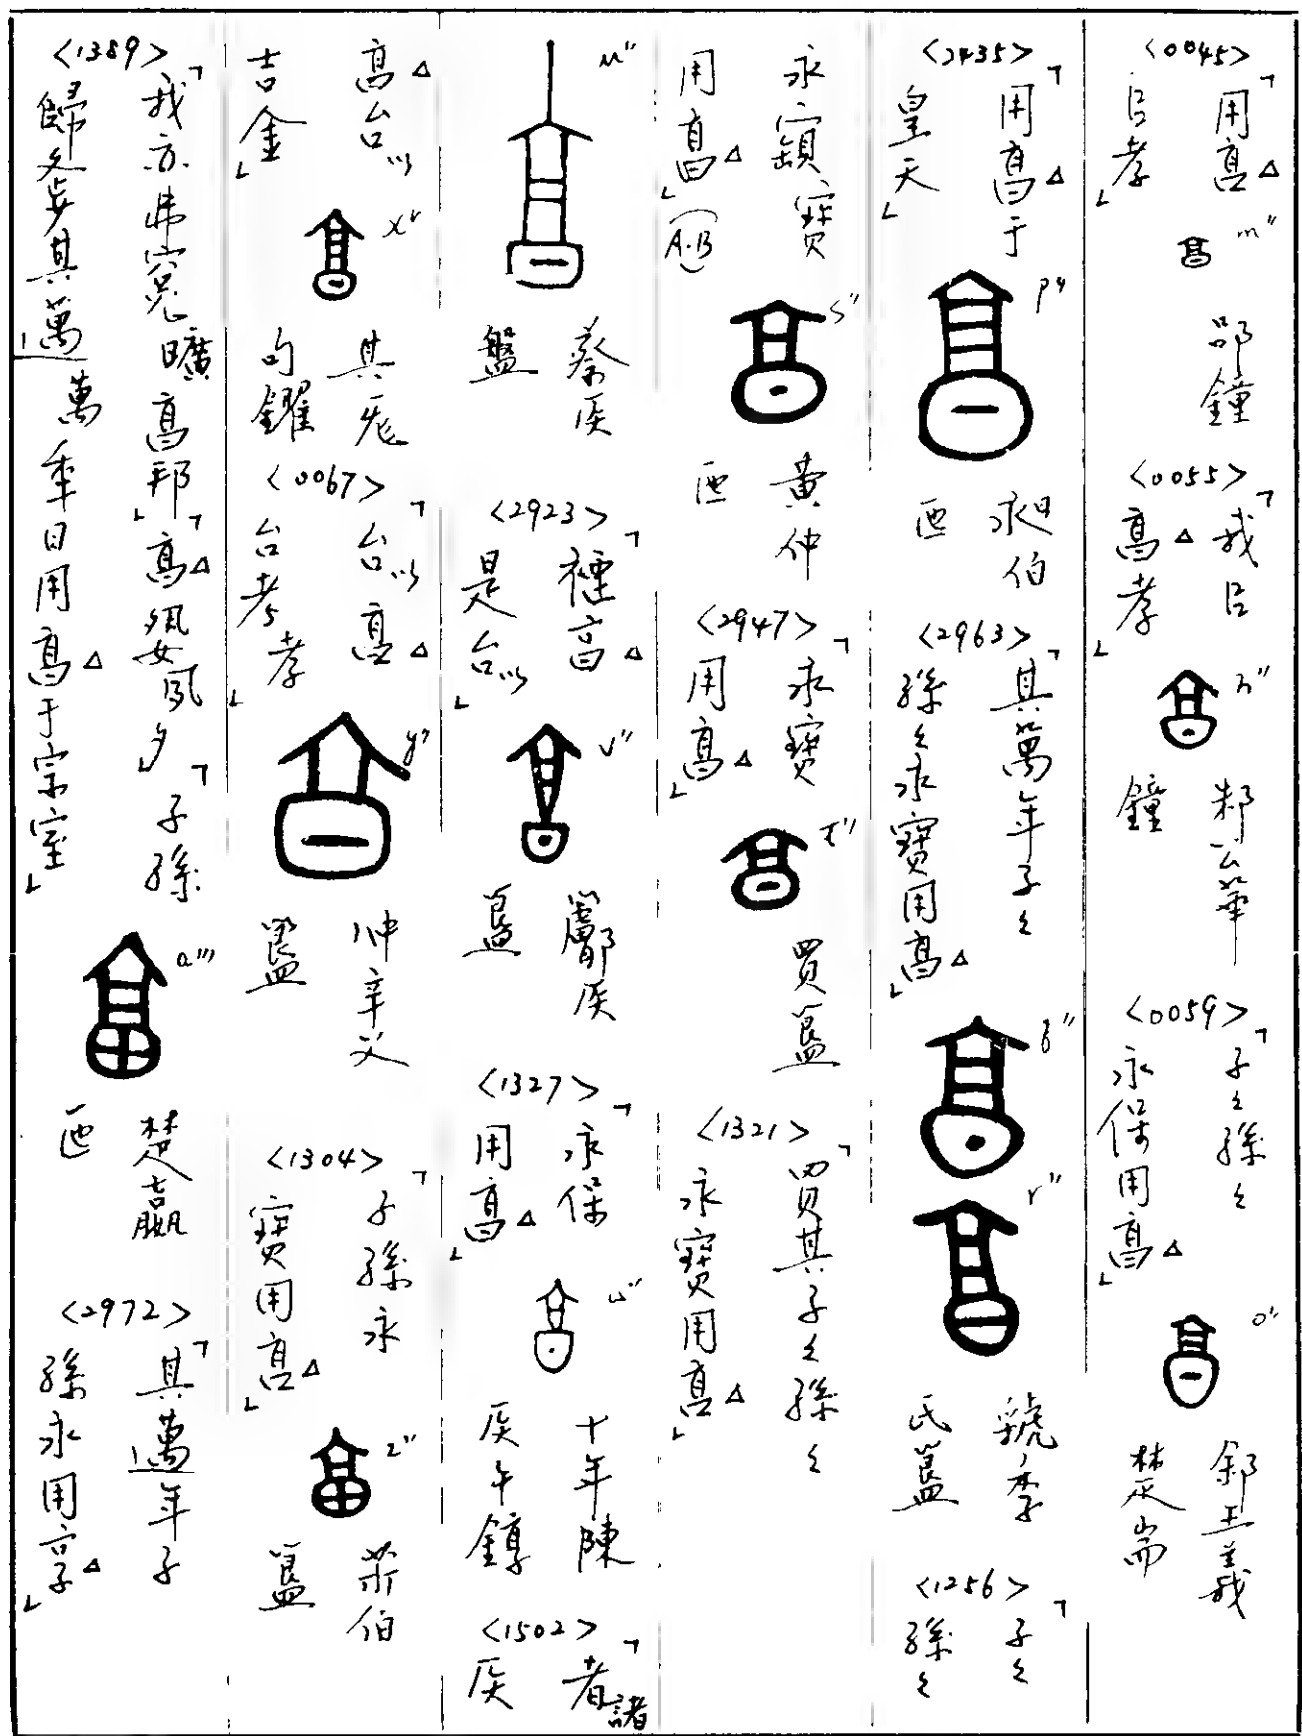 <0045>「用亯△
㠯孝」
m''
郘鐘
<0055>「我㠯
亯△孝」
n''
邾公華
鐘
<0059>「子〻孫〻
永保用亯△」
o''
郐王義
楚耑
<2435>「用亯△于
皇天」
p''
伯
<2963>「其萬年子〻
孫〻永寶用亯△」
q''
r''
虢季
氏簋
<1256>「子〻
孫〻
永寶
用亯△」(A.B)
s''
黃仲
匜
<2947>「永寶
用亯△」
t''
買簋
<1321>「買其子〻孫〻
永寶用亯△」
u''
蔡侯
盤
<2923>「禋亯△
是台以」
v''
簋
<1327>「永保
用亯△」
w''
十年陳
侯午錞
<1502>「者諸
侯
亯△台以
吉金」
x''
其
句鑃
<0067>「台以亯△
台考孝」
y''
仲辛父
簋
<1304>「子孫永
寶用亯△」
z''
伯
簋
<1389>「我亦弗
曠亯邦」「亯△
夙夕」「子孫
其邁萬年日用亯△于宗室」
a'''
楚嬴
匜
<2972>「其邁年子
孫永用享△」